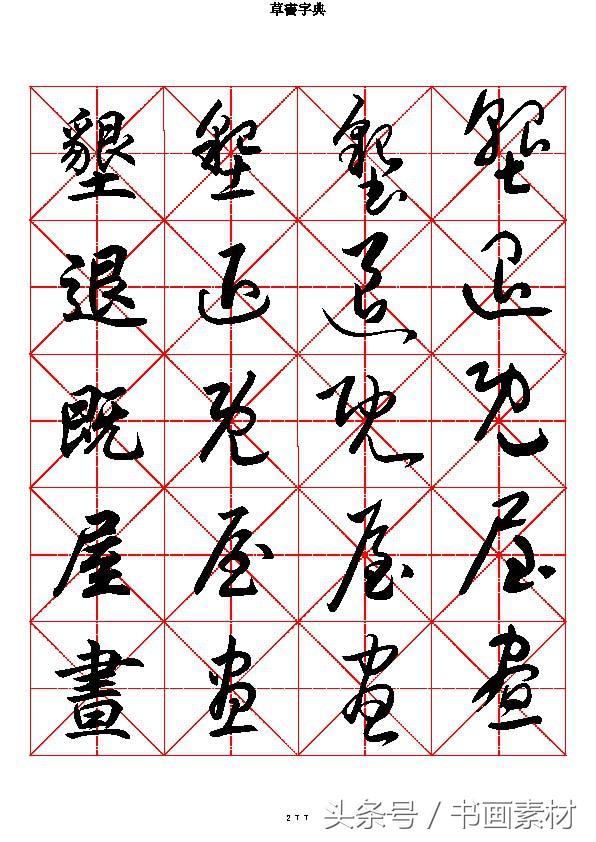 草書字典
墾 墾 墾 墾
退 退 退 退
既 既 既 既
屋 屋 屋 屋
晝 晝 晝 晝
277
头条号 / 书画素材